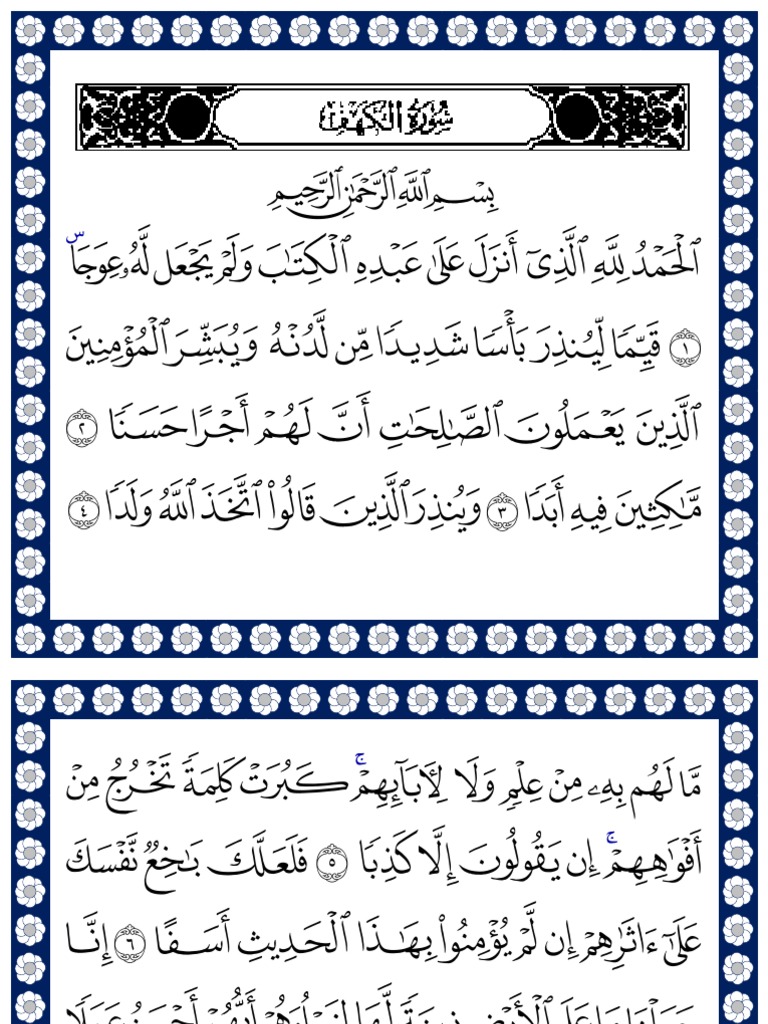 سُورَةُ الكَهْفِ
بِسْمِ ٱللَّهِ ٱلرَّحْمَٰنِ ٱلرَّحِيمِ
ٱلْحَمْدُ لِلَّهِ ٱلَّذِىٓ أَنزَلَ عَلَىٰ عَبْدِهِ ٱلْكِتَٰبَ وَلَمْ يَجْعَل لَّهُۥ عِوَجَاۜ
١ قَيِّمًا لِّيُنذِرَ بَأْسًا شَدِيدًا مِّن لَّدُنْهُ وَيُبَشِّرَ ٱلْمُؤْمِنِينَ
ٱلَّذِينَ يَعْمَلُونَ ٱلصَّٰلِحَٰتِ أَنَّ لَهُمْ أَجْرًا حَسَنًا ٢
مَّٰكِثِينَ فِيهِ أَبَدًا ٣ وَيُنذِرَ ٱلَّذِينَ قَالُوا۟ ٱتَّخَذَ ٱللَّهُ وَلَدًا ٤
مَّا لَهُم بِهِۦ مِنْ عِلْمٍ وَلَا لِـَٔابَآئِهِمْ ۚ كَبُرَتْ كَلِمَةً تَخْرُجُ مِنْ
أَفْوَٰهِهِمْ ۚ إِن يَقُولُونَ إِلَّا كَذِبًا ٥ فَلَعَلَّكَ بَٰخِعٌ نَّفْسَكَ
عَلَىٰٓ ءَاثَٰرِهِمْ إِن لَّمْ يُؤْمِنُوا۟ بِهَٰذَا ٱلْحَدِيثِ أَسَفًا ٦ إِنَّا
جَعَلْنَا مَا عَلَى ٱلْأَرْضِ زِينَةً لَّهَا لِنَبْلُوَهُمْ أَيُّهُمْ أَحْسَنُ عَمَلًا